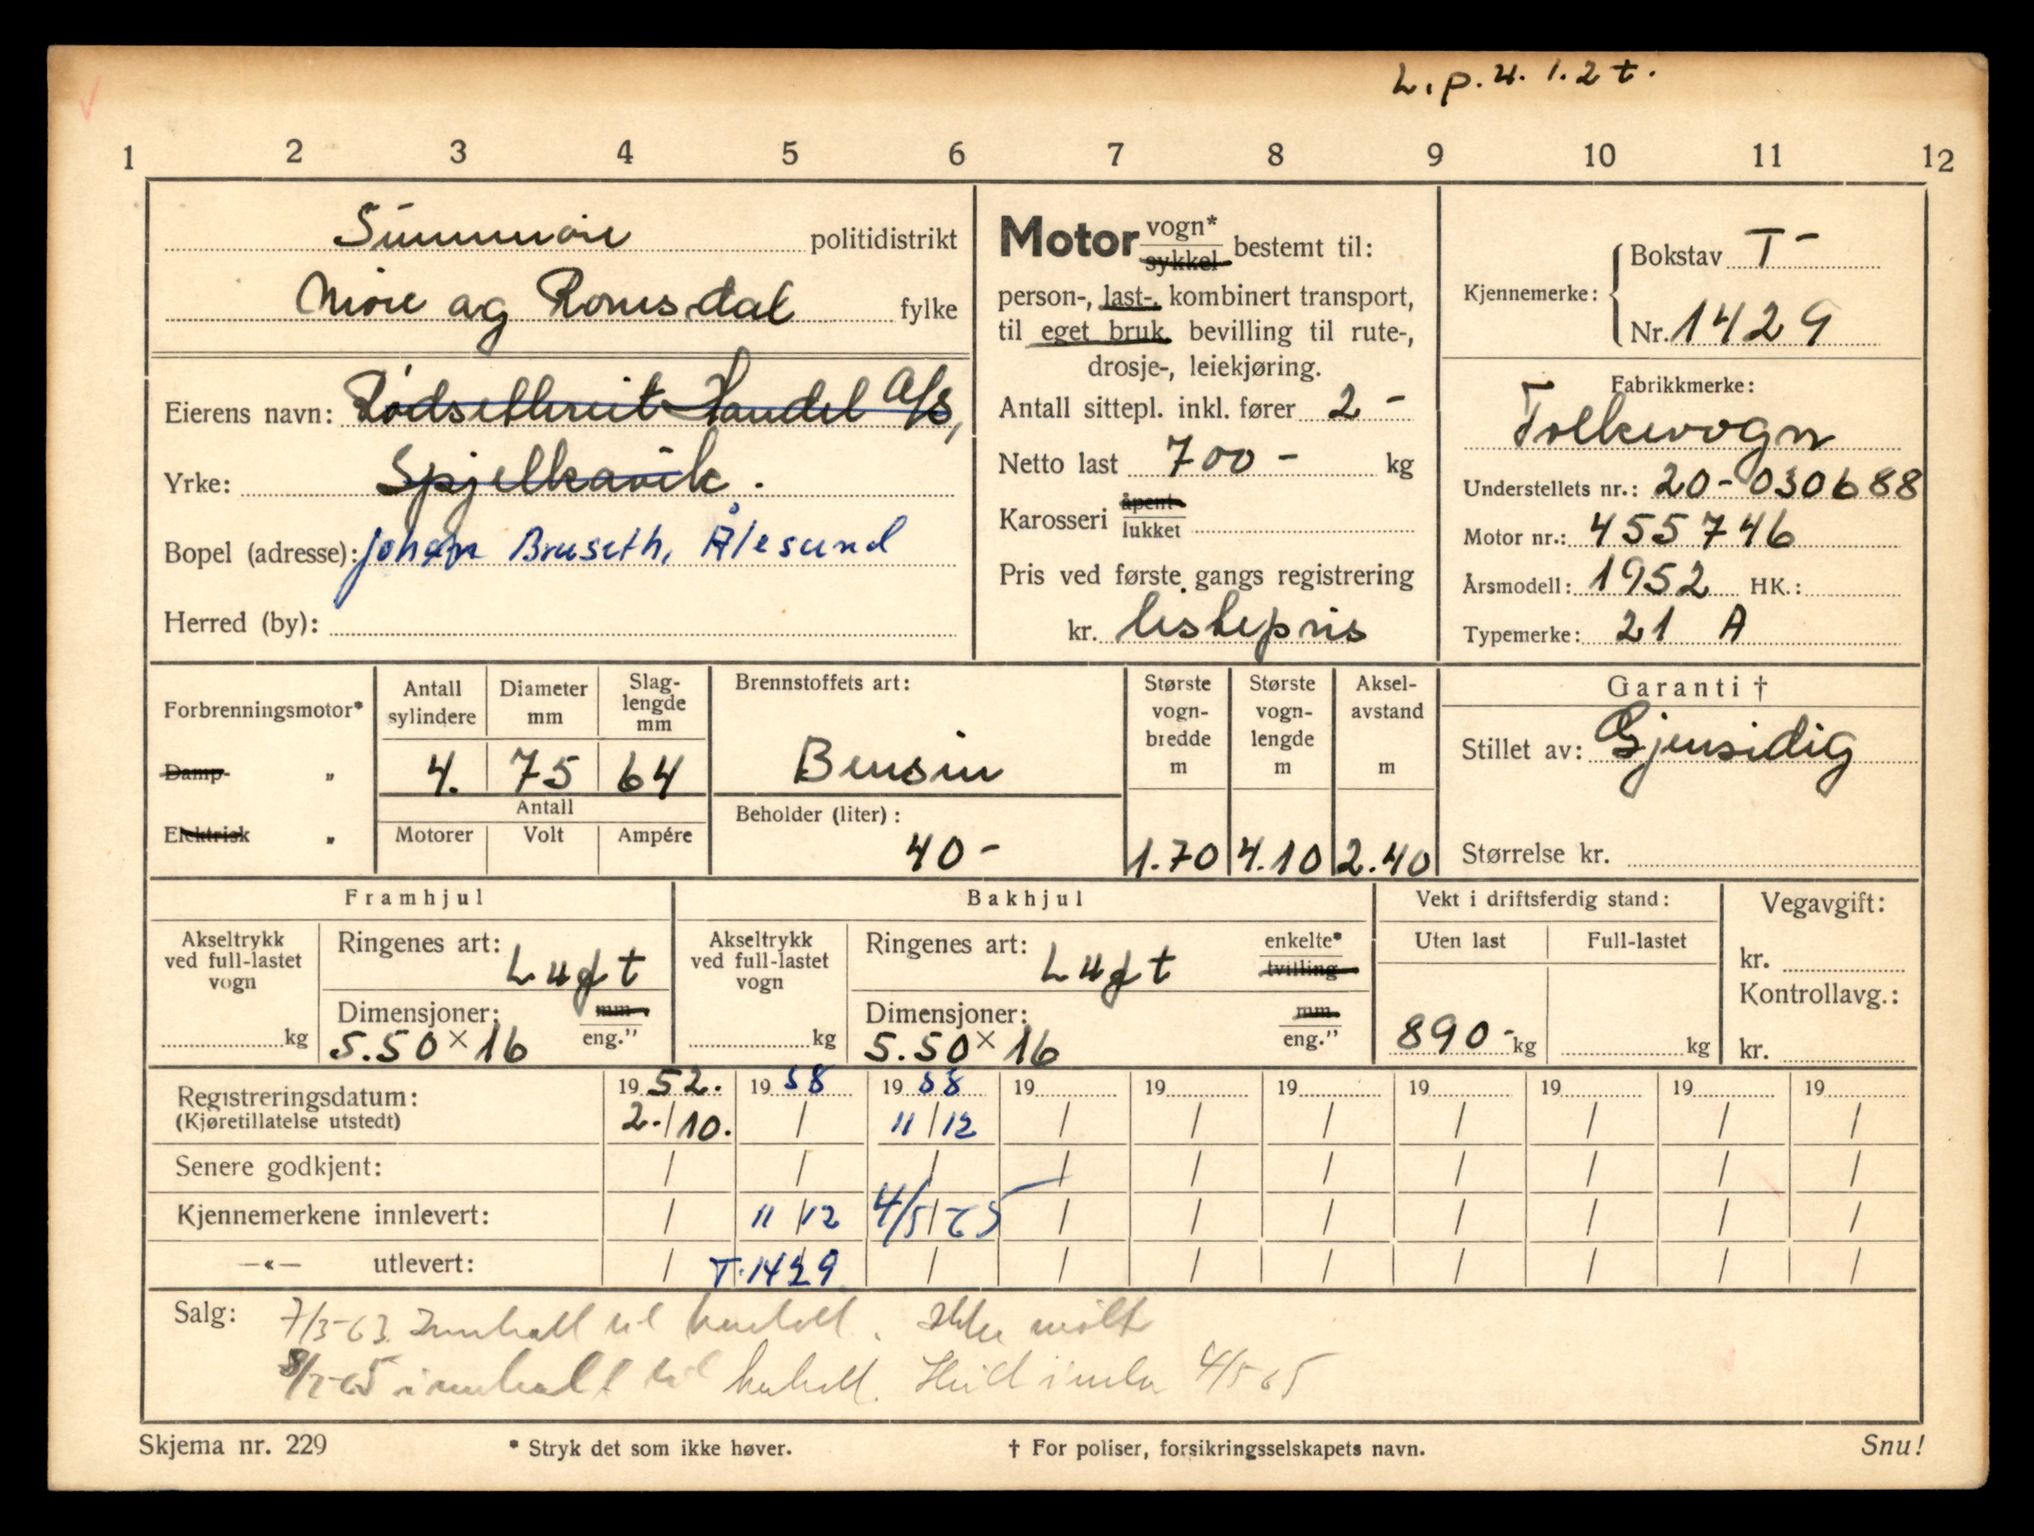 L.p.u. 1.2 t.
1 2 3 4 5 6 7 8 9 10 11 12
Sunnmøre politidistrikt
Møre og Romsdal fylke
Eierens navn: Rødsethreit Handel A/S,
Yrke: Spjelkavik.
Bopel (adresse): Johan Bruseth, Ålesund
Herred (by):
Motor vogn* sykkel bestemt til:
person-, last-, kombinert transport,
til eget bruk, bevilling til rute-,
drosje-, leiekjøring.
Antall sittepl. inkl. fører 2 -
Netto last 700 - kg
Karosseri åpent lukket
Pris ved første gangs registrering
kr. listepris
Kjennemerke: Bokstav T-
Nr. 1429
Fabrikkmerke:
Folkevogn
Understellets nr.: 20-030688
Motor nr.: 455746
Årsmodell: 1952 HK.:
Typemerke: 21 A
Forbrenningsmotor*
Damp- „
Elektrisk „
Antall sylindere
Diameter mm
Slag-lengde mm
4. 75 64
Antall
Motorer Volt Ampére
Brennstoffets art:
Bensin
Beholder (liter):
40-
Største vogn-bredde m
Største vogn-lengde m
Aksel-avstand m
1.70 4.10 2.40
Garanti †
Stillet av: Gjensidig
Størrelse kr.
Framhjul
Akseltrykk ved full-lastet vogn
kg
Ringenes art: Luft
Dimensjoner: mm eng."
5.50 × 16
Bakhjul
Akseltrykk ved full-lastet vogn
kg
Ringenes art: Luft enkelte* tvilling
Dimensjoner: mm eng."
5.50 × 16
Vekt i driftsferdig stand:
Uten last Full-lastet
890- kg kg
Vegavgift:
kr.
Kontrollavg.:
kr.
Registreringsdatum: 19 52. 19 58 19 58 19 19 19 19 19 19 19
(Kjøretillatelse utstedt) 2./10. / 11/12 / / / / / / /
Senere godkjent: / / / / / / / / / /
Kjennemerkene innlevert: / 11/12 4/5/65 / / / / / / /
—«— utlevert: / T.1429 / / / / / / / /
Salg: 7/3-63 Innkalt til kontroll. Ikke møtt
8/2-65 innkalt til kontroll. 4/5 65
Skjema nr. 229 * Stryk det som ikke høver. † For poliser, forsikringsselskapets navn. Snu!